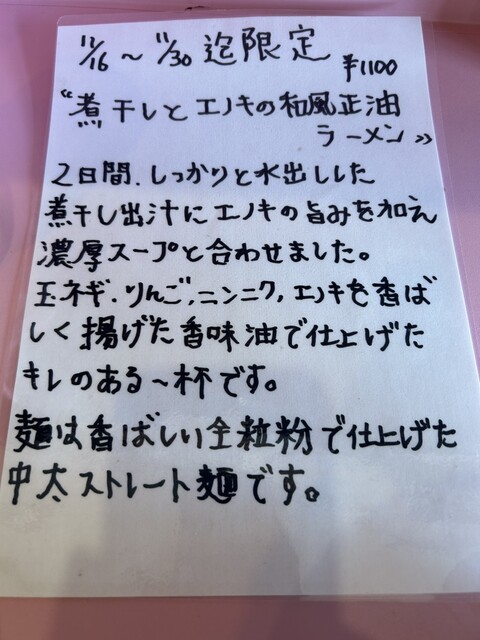 11/16 ~ 11/30 迄限定
¥1100
"煮干しとエノキの和風正油
ラーメン"
2日間、しっかりと水出しした
煮干し出汁にエノキの旨みを加え
濃厚スープと合わせました。
玉ネギ、りんご、ニンニク、エノキを香ば
しく揚げた香味油で仕上げた
キレのある一杯です。
麺は香ばしい全粒粉で仕上げた
中太ストレート麺です。